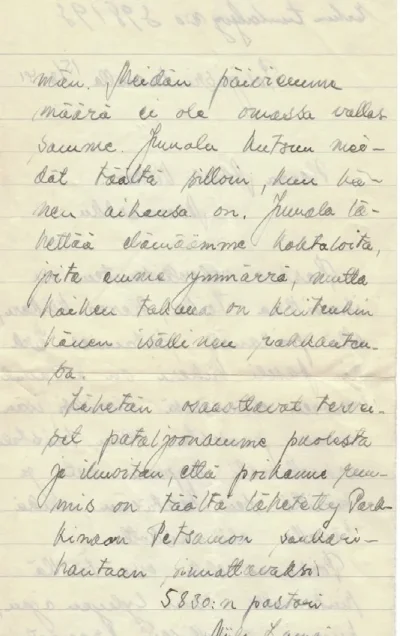 män. Meidän päiviemme
määrä ei ole omassa vallas
samme. Jumala kutsuu mei-
dät täältä silloin, kun hä-
nen aikansa on. Jumala lä-
hettää elämäämme kohtaloita,
joita emme ymmärrä, mutta
kaiken takana on kuitenkin
hänen isällinen rakkauten-
sa.
Lähetän osaaottavat tervei-
set pataljoonamme puolesta
ja ilmoitan, että poikanne ruu-
mis on täältä lähetetty Park
kinaan Petsamon sankari-
hautaan siunattavaksi.
5830:n pastori